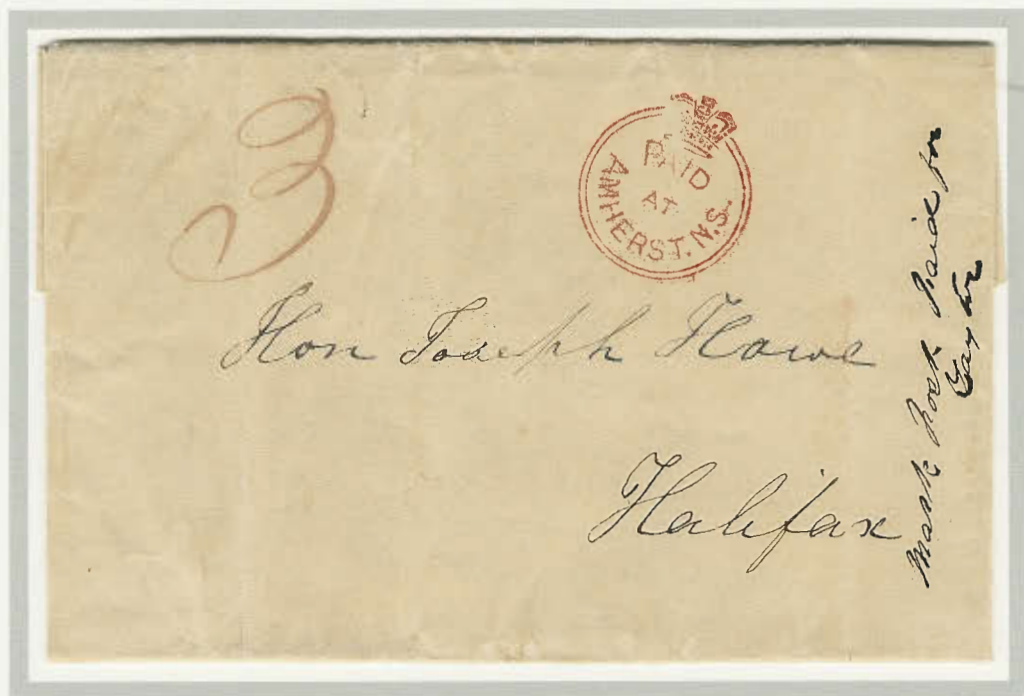 3
PAID
AT
AMHERST. N.S.
Hon Joseph Howe
Halifax
Mark Post Paid for